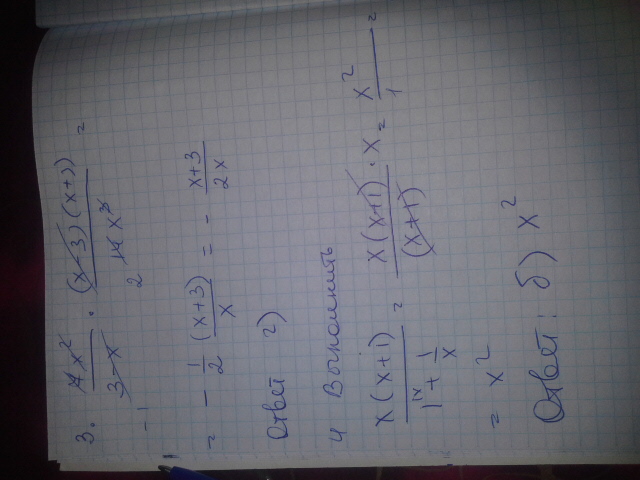 3. 4x²/3-x · (x-3)(x+3)/14x³ =
-1 2
= - 1/2 (x+3)/x = - x+3/2x
Ответ г)
4 Выполнить
x(x+1)/1ˣ + 1/x = x(x+1) · x/(x+1) = x²/1 =
= x²
Ответ: б) x²